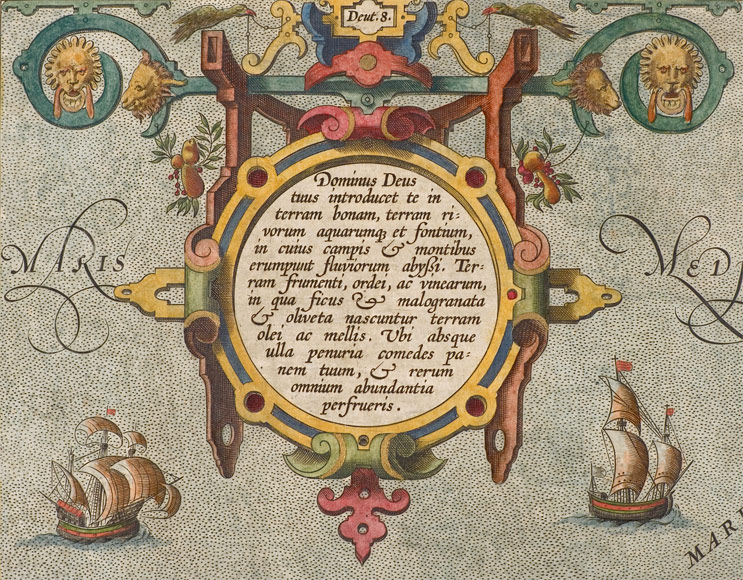 Deut. 8.
Dominus Deus
tuus introducet te in
terram bonam, terram ri-
vorum aquarumq; et fontium,
in cuius campis & montibus
erumpunt fluviorum abyßi. Ter-
ram frumenti, ordei, ac vinearum,
in qua ficus & malogranata
& oliveta nascuntur terram
olei ac mellis. Ubi absque
ulla penuria comedes pa-
nem tuum, & rerum
omnium abundantia
perfrueris.
MARIS
MED
MAR